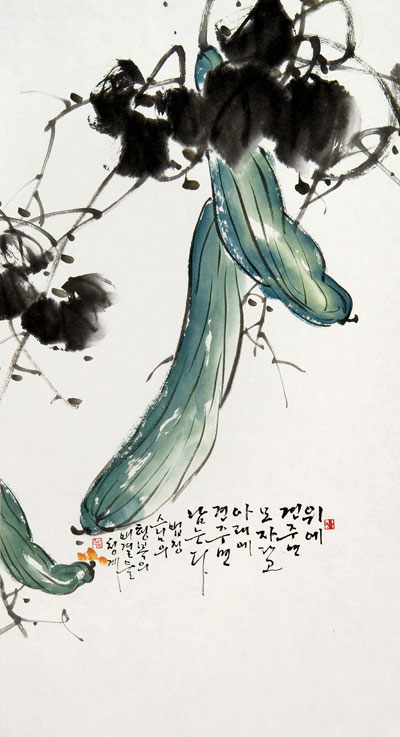 위에
견주면
모자라고
아래에
견주면
남는다
법정
스님의
행복의
비결을
청계